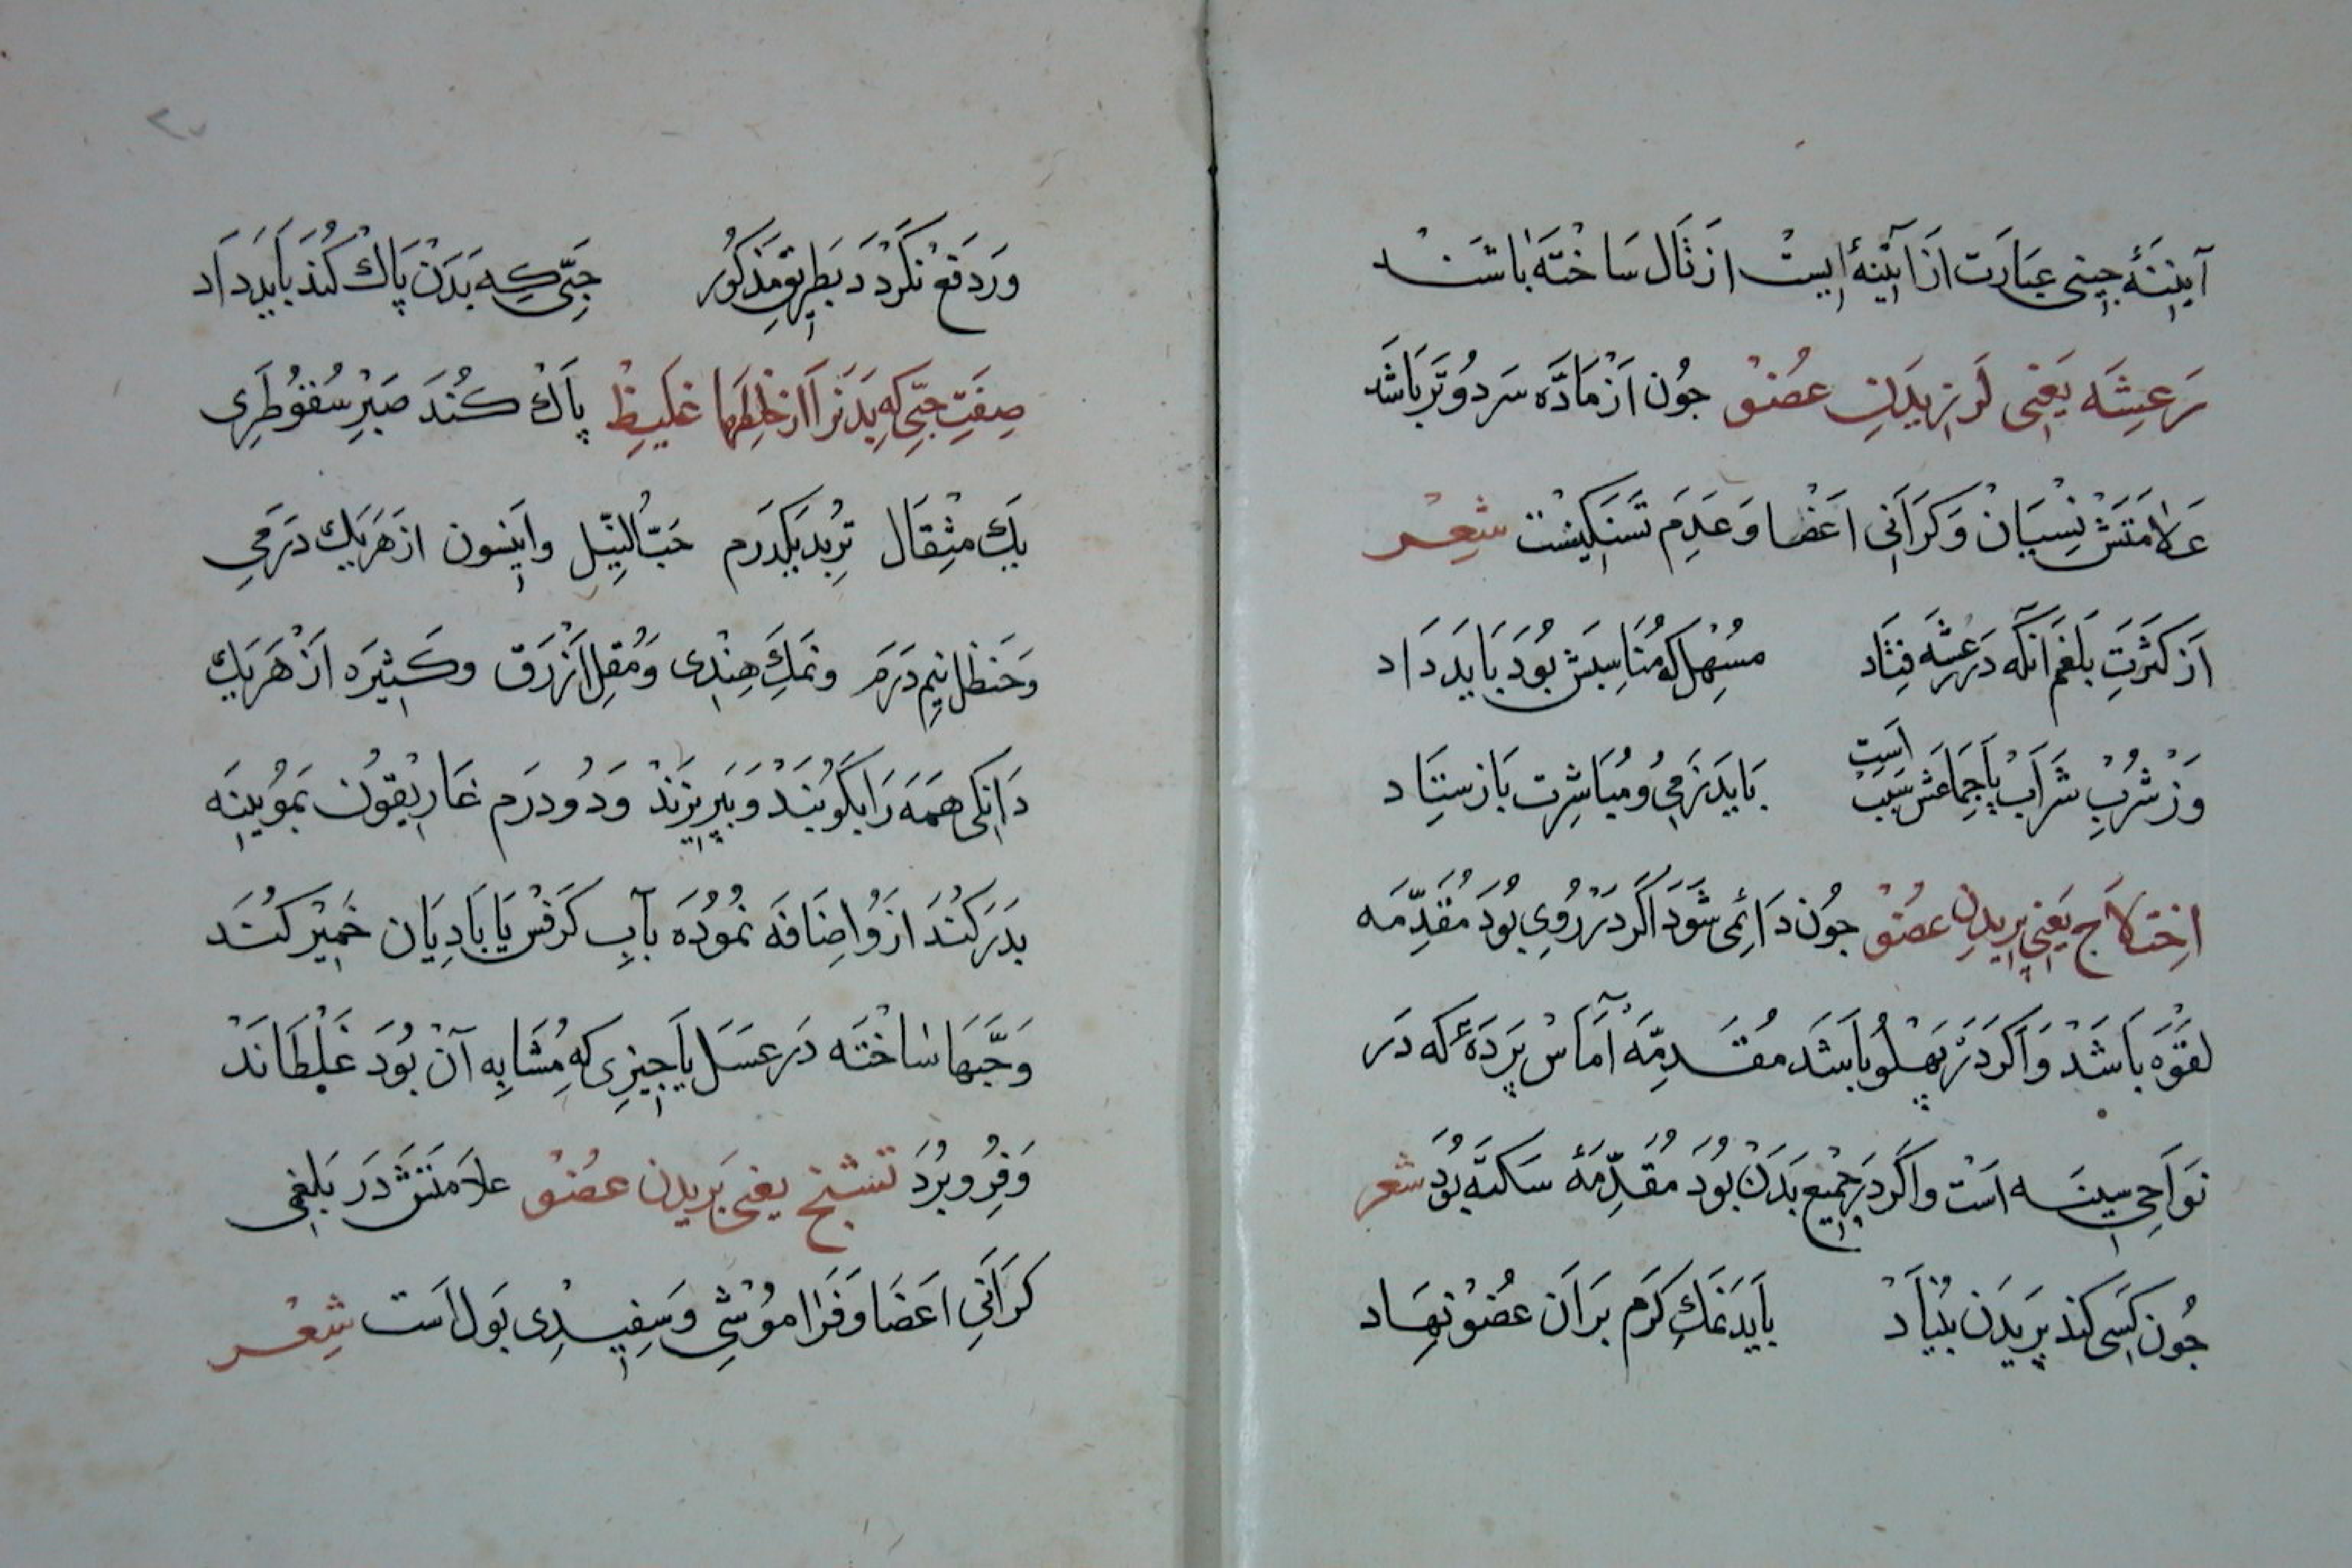 آیینهٔ جینی عبارت از آیینهٔ ایست از ثال ساخته باشند
رعشه یعنی لرزیدن عضو جون از ماده سرد و تر باشد
علامتش نسیان و کرانی اعضا و عدم تسنکیست شعر
از کثرت بلغم آنکه در رعشه فتاد مسهل که مناسبش بود باید داد
وز شرب شراب یا جماعش سبب است باید ز می و مباشرت باز ستاد
اختلاج یعنی پریدن عضو جون دائمی شود اکر در روی بود مقدمه
لقوه باشد و اکر در پهلو باشد مقدمه آماس پردهٔ که در
نواحی سینه است و اکر در جمیع بدن بود مقدمهٔ سکته بود شعر
جون کسی کند پریدن بنیاد باید نمک کرم بر آن عضو نهاد
ور دفع نکردد بطریق مذکور حبی که بدن پاک کند باید داد
صفت حبی که بدنرا از خلطها غلیظ پاک کند صبر سقوطری
یک مثقال تربد یکدرم حب النیل و انیسون از هر یک درمی
و حنظل نیم درم و نمک هندی و مقل ازرق و کثیره از هر یک
دانکی همه را بکوبند و ببیزند و دو درم غاریقون بموینه
بدر کنند از و اضافه نموده بآب کرفس یا بادیان خمیر کنند
و حبها ساخته در عسل یا جیزی که مشابه آن بود غلطانند
و فرو برد تشنج یعنی بریدن عضو علامتش در بلغمی
کرانی اعضا و فراموشی و سفیدی بول است شعر